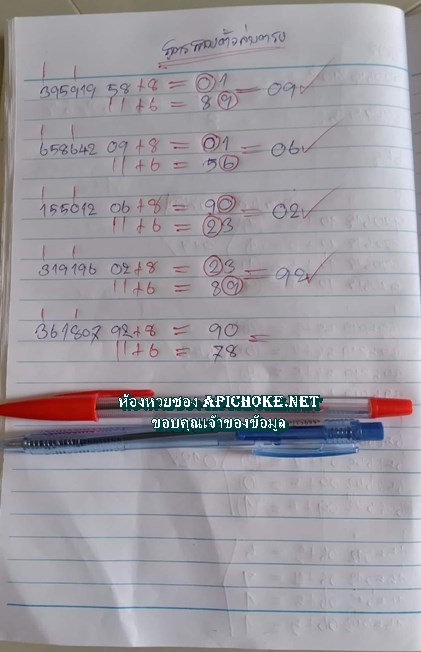 สูตรสองตัวล่างตรง
395919 58+8 = 01 = 09 ✓
11+6 = 89
658642 09+8 = 01 = 06 ✓
11+6 = 56
155012 06+8 = 90 = 02 ✓
11+6 = 23
319196 02+8 = 23 = 92 ✓
11+6 = 89
361807 92+8 = 90 =
11+6 = 78
ห้องหวยซอง APICHOKE.NET
ขอบคุณเจ้าของข้อมูล